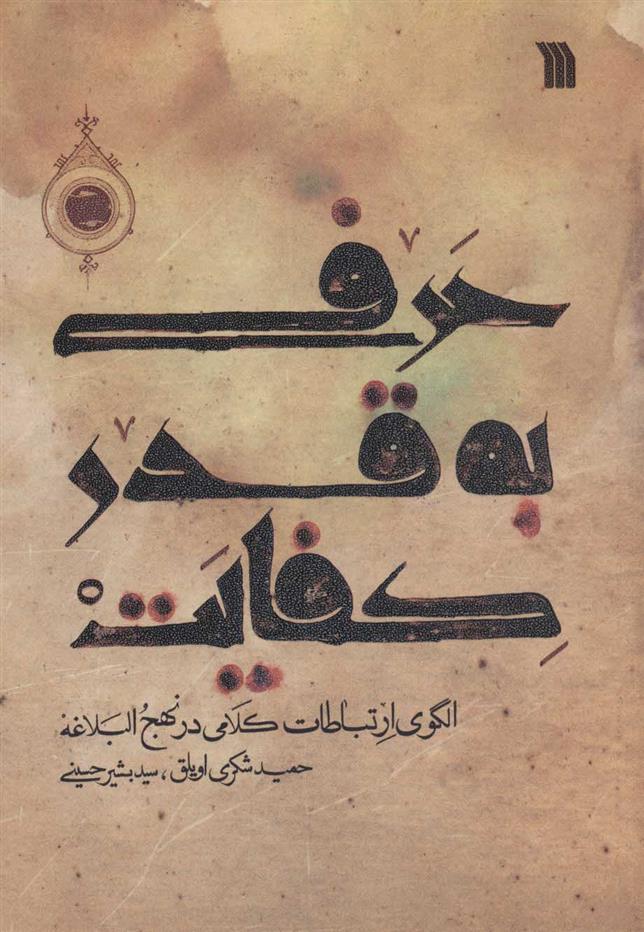 حَرفی
به قدر
کِفایَتْ
الگوی ارتباطات کلامی در نهج البلاغه
حمید شکری اویلق، سید بشیر حسینی